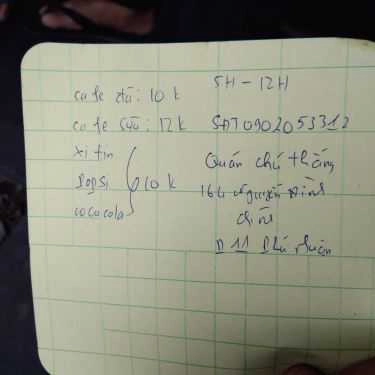 cafe đá: 10 k
cafe sữa: 12 k
xi tin
pepsi
cococola
10 k
5H - 12H
SĐT 0902053312
Quán chú thắng
164 nguyễn đình
chính
P 11 Phú nhuận